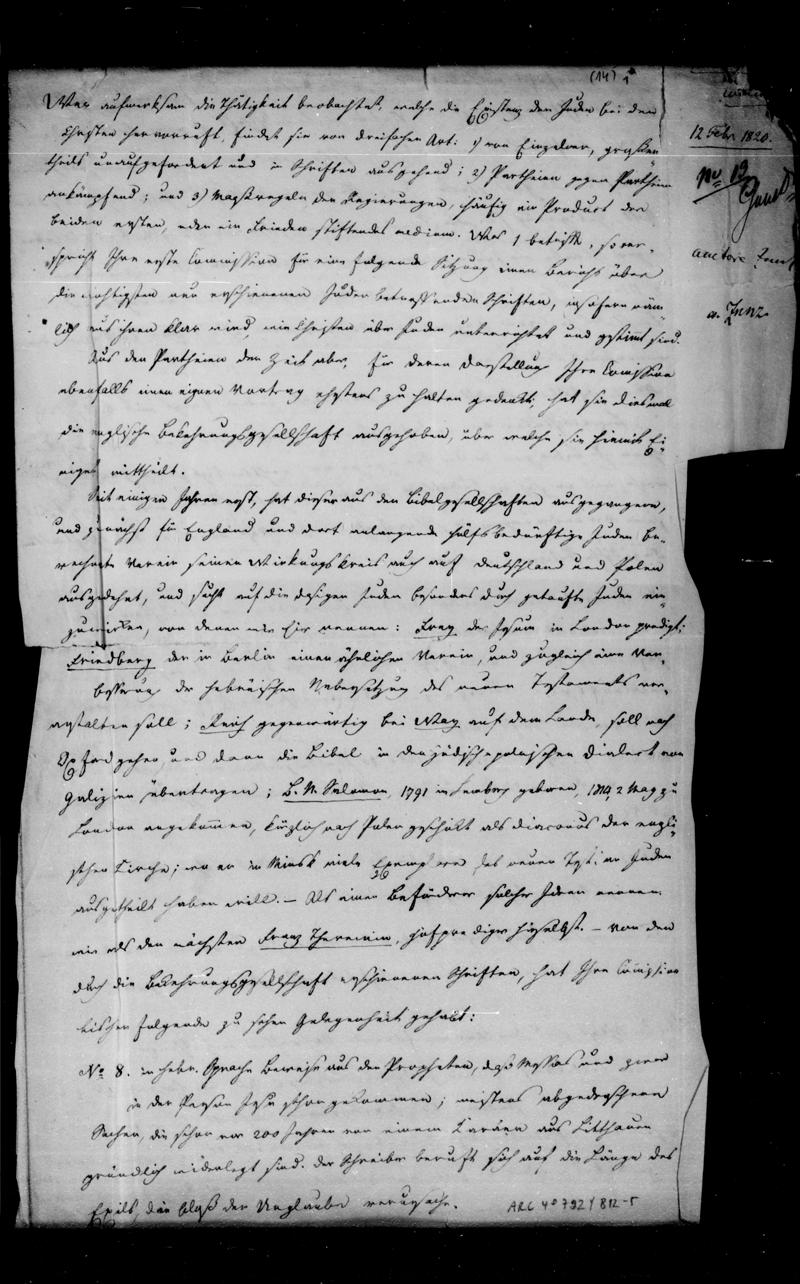 (14) 1
12 Febr 1820.
No 13
auctore Zunz
v. Zunz
Wer aufmerksam die Thätigkeit beobachtet, welche die Existenz der Juden bei den
Christen hervorruft, findet sie von dreifacher Art: 1) von Einzelnen, größten
theils unaufgefordert und in Schriften ausgehend; 2) Partheien gegen Partheien
ankämpfend; und 3) Maßregeln der Regierungen, häufig ein Product der
beiden ersten, oder ein Frieden stiftendes medium. Was 1 betrifft, so ver-
spricht Ihre erste Commission für eine folgende Sitzung einen Bericht über
die wichtigsten neu erschienenen Juden betreffenden Schriften, insofern näm-
lich aus ihnen klar wird, wie Christen über Juden unterrichtet und gestimmt sind.
Aus den Partheien der Zeit aber, für deren Darstellung Ihre Commission
ebenfalls einen eignen Vortrag ehstens zu halten gedenkt, hat sie diesmal
die englische Bekehrungsgesellschaft ausgehoben, über welche sie hiermit Ei-
niges mittheilt.
Seit einigen Jahren erst, hat dieser aus den Bibelgesellschaften ausgegangene,
und zunächst für England und dort anlangende hülfsbedürftige Juden be-
rechnete Verein seinen Wirkungskreis auch auf Deutschland und Polen
ausgedehnt, und sucht auf die dasigen Juden besonders durch getaufte Juden ein-
zuwirken, von denen wir hier nennen: Frey der Jesum in London predigt;
Friedberg der in Berlin einen ähnlichen Verein, und zugleich eine Ver-
besserung der hebräischen Uebersetzung des neuen Testaments ver-
anstalten soll; gegenwärtig bei Way auf dem Lande, soll nach
Oxford gehen, und dann die Bibel in den jüdisch-polnischen Dialect von
Galizien übertragen; B. N. Salomon, 1791 in Lemberg geboren, 1814, 2 May zu
London angekommen, kürzlich nach Polen geschickt als Diaconus der engli-
schen Kirche; wo er in Minsk viele Exemplare des neuen Test. an Juden
ausgetheilt haben will. – Als einen Beförderer solcher Ideen nennen
wir als den nächsten Franz Theremin, Hofprediger hieselbst. – Von den
durch die Bekehrungsgesellschaft erschienenen Schriften, hat Ihre Commission
bisher folgende zu sehen Gelegenheit gehabt:
No 8. in hebr. Sprache Beweise aus den Propheten, daß Messias und zwar
in der Person Jesu schon gekommen; meistens abgedroschene
Sachen, die schon vor 200 Jahren von einem Karäer aus Litthauen
gründlich widerlegt sind. Der Schreiber beruft sich auf die Länge des
Exils, die bloß der Unglaube verursache.
ARC 4° 792/B12-5